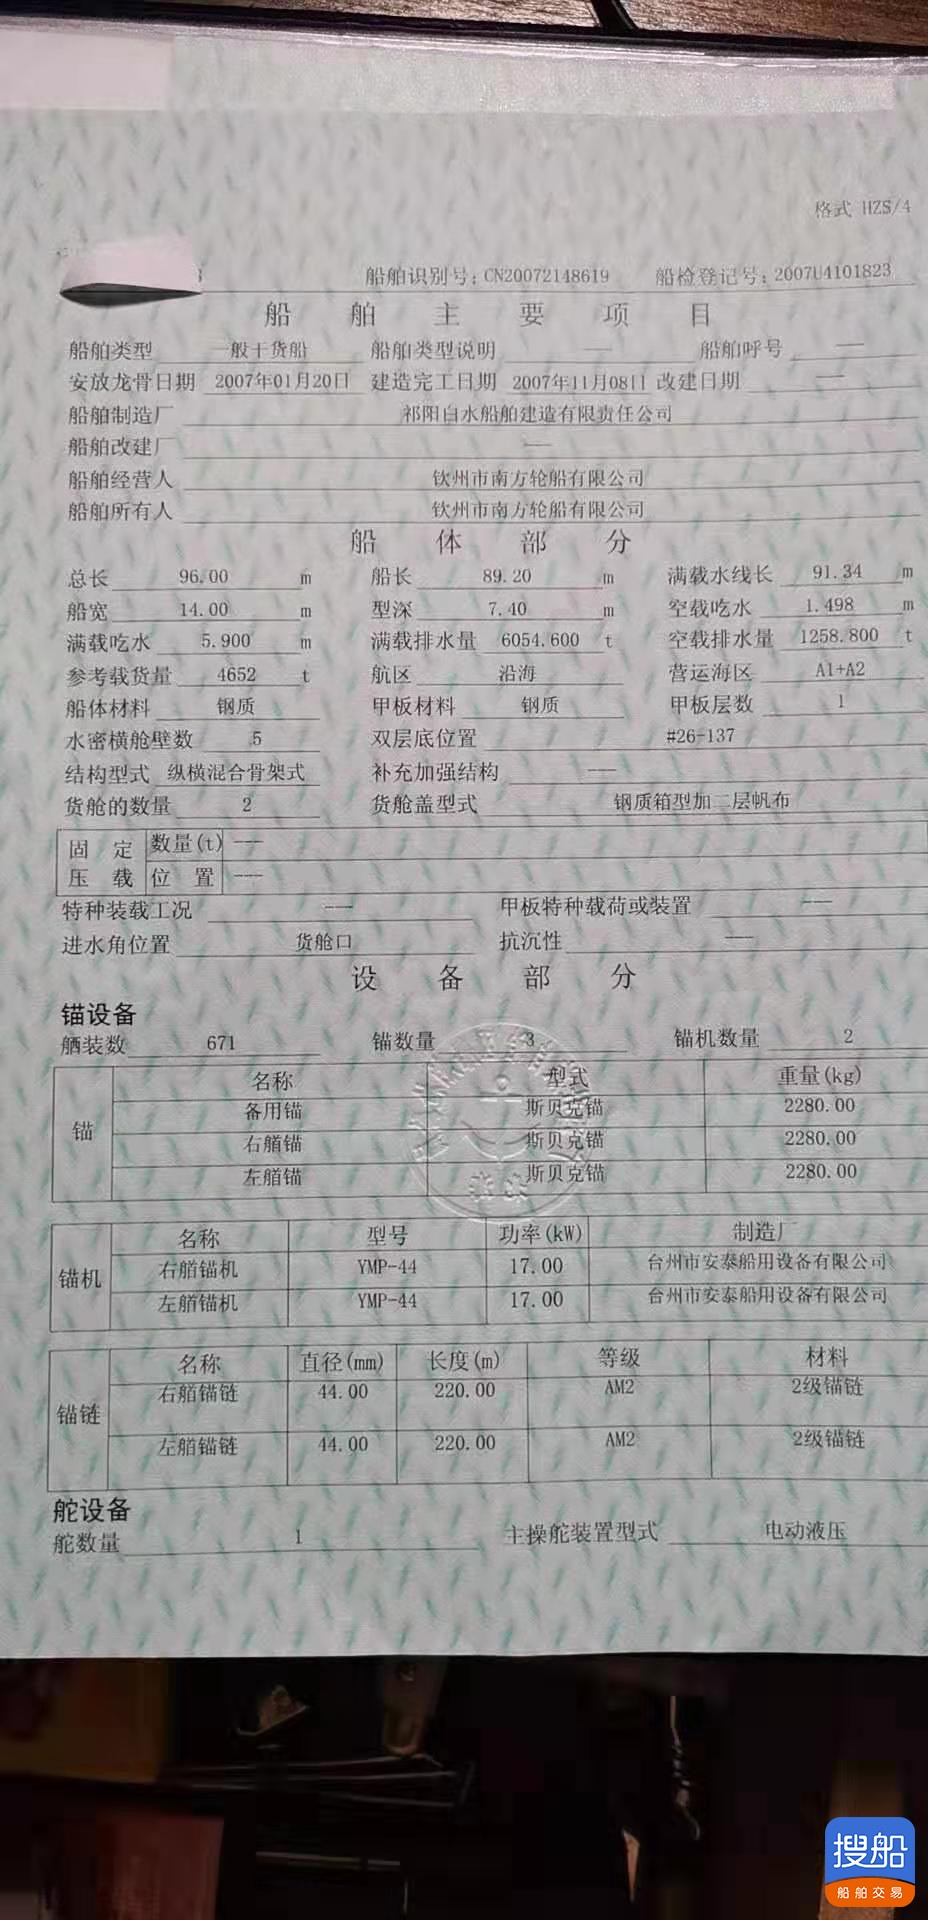 格式 HZS/4
船舶识别号：CN20072148619 船检登记号：2007U4101823
船舶主要项目
船舶类型 一般干货船 船舶类型说明 —— 船舶呼号 ——
安放龙骨日期 2007年01月20日 建造完工日期 2007年11月08日 改建日期 ——
船舶制造厂 祁阳白水船舶建造有限责任公司
船舶改建厂 ——
船舶经营人 钦州市南方轮船有限公司
船舶所有人 钦州市南方轮船有限公司
船体部分
总长 96.00 m 船长 89.20 m 满载水线长 91.34 m
船宽 14.00 m 型深 7.40 m 空载吃水 1.498 m
满载吃水 5.900 m 满载排水量 6054.600 t 空载排水量 1258.800 t
参考载货量 4652 t 航区 沿海 营运海区 A1+A2
船体材料 钢质 甲板材料 钢质 甲板层数 1
水密横舱壁数 5 双层底位置 #26-137
结构型式 纵横混合骨架式 补充加强结构 ---
货舱的数量 2 货舱盖型式 钢质箱型加二层帆布
固定 数量(t) ---
压载 位置 ---
特种装载工况 --- 甲板特种载荷或装置 ---
进水角位置 货舱口 抗沉性 ---
设备部分
锚设备
舾装数 671 锚数量 3 锚机数量 2
名称 型式 重量(kg)
备用锚 斯贝克锚 2280.00
锚 右艏锚 斯贝克锚 2280.00
左艏锚 斯贝克锚 2280.00
名称 型号 功率(kW) 制造厂
锚机 右艏锚机 YMP-44 17.00 台州市安泰船用设备有限公司
左艏锚机 YMP-44 17.00 台州市安泰船用设备有限公司
名称 直径(mm) 长度(m) 等级 材料
右艏锚链 44.00 220.00 AM2 2级锚链
锚链
左艏锚链 44.00 220.00 AM2 2级锚链
舵设备
舵数量 1 主操舵装置型式 电动液压
搜船
船舶交易